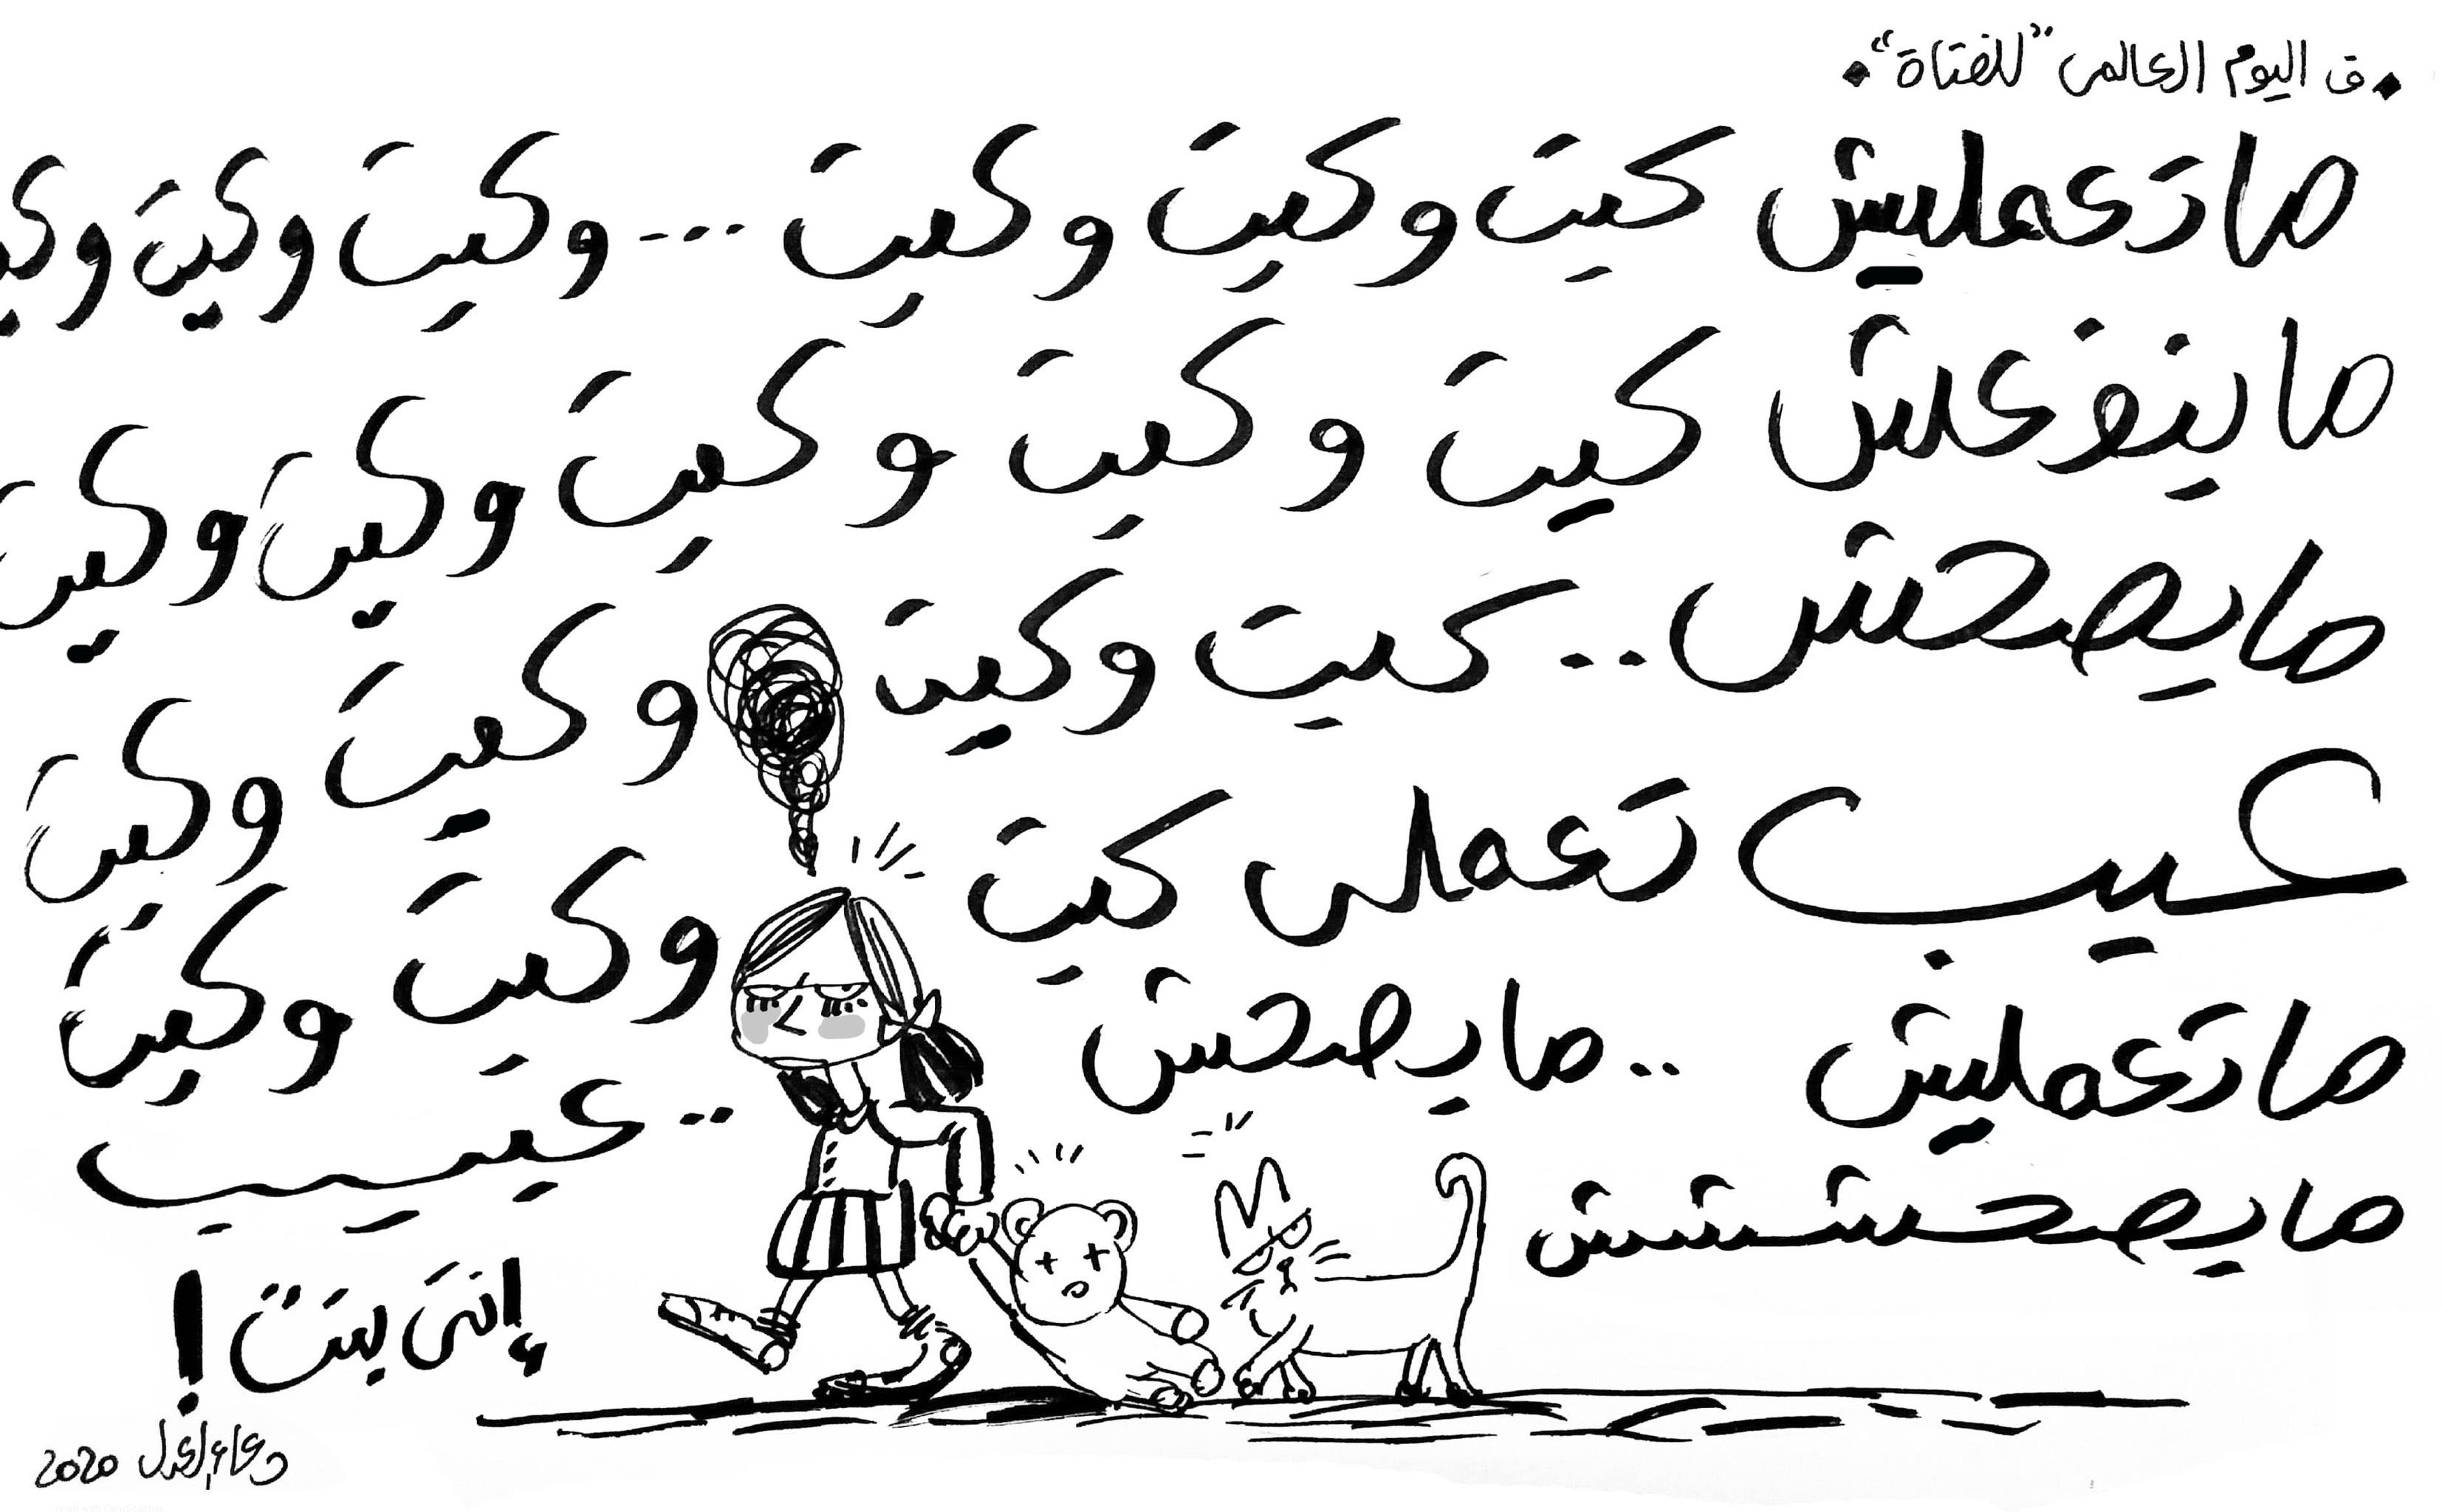 ف اليوم العالمى "للفتاة"
ماتعمليش كيت وكيت وكيت ... وكيت وكيت وكي
ماينفعش كيت وكيت وكيت وكيت وكيت
مايصحش .. كيت وكيت وكيت وكيت
عيب تعملى كيت وكيت وكيت
ماتعمليش .. مايصحش .. عيييب
مايصحشششش
إنتى بنت !
دعاء العدل 2020